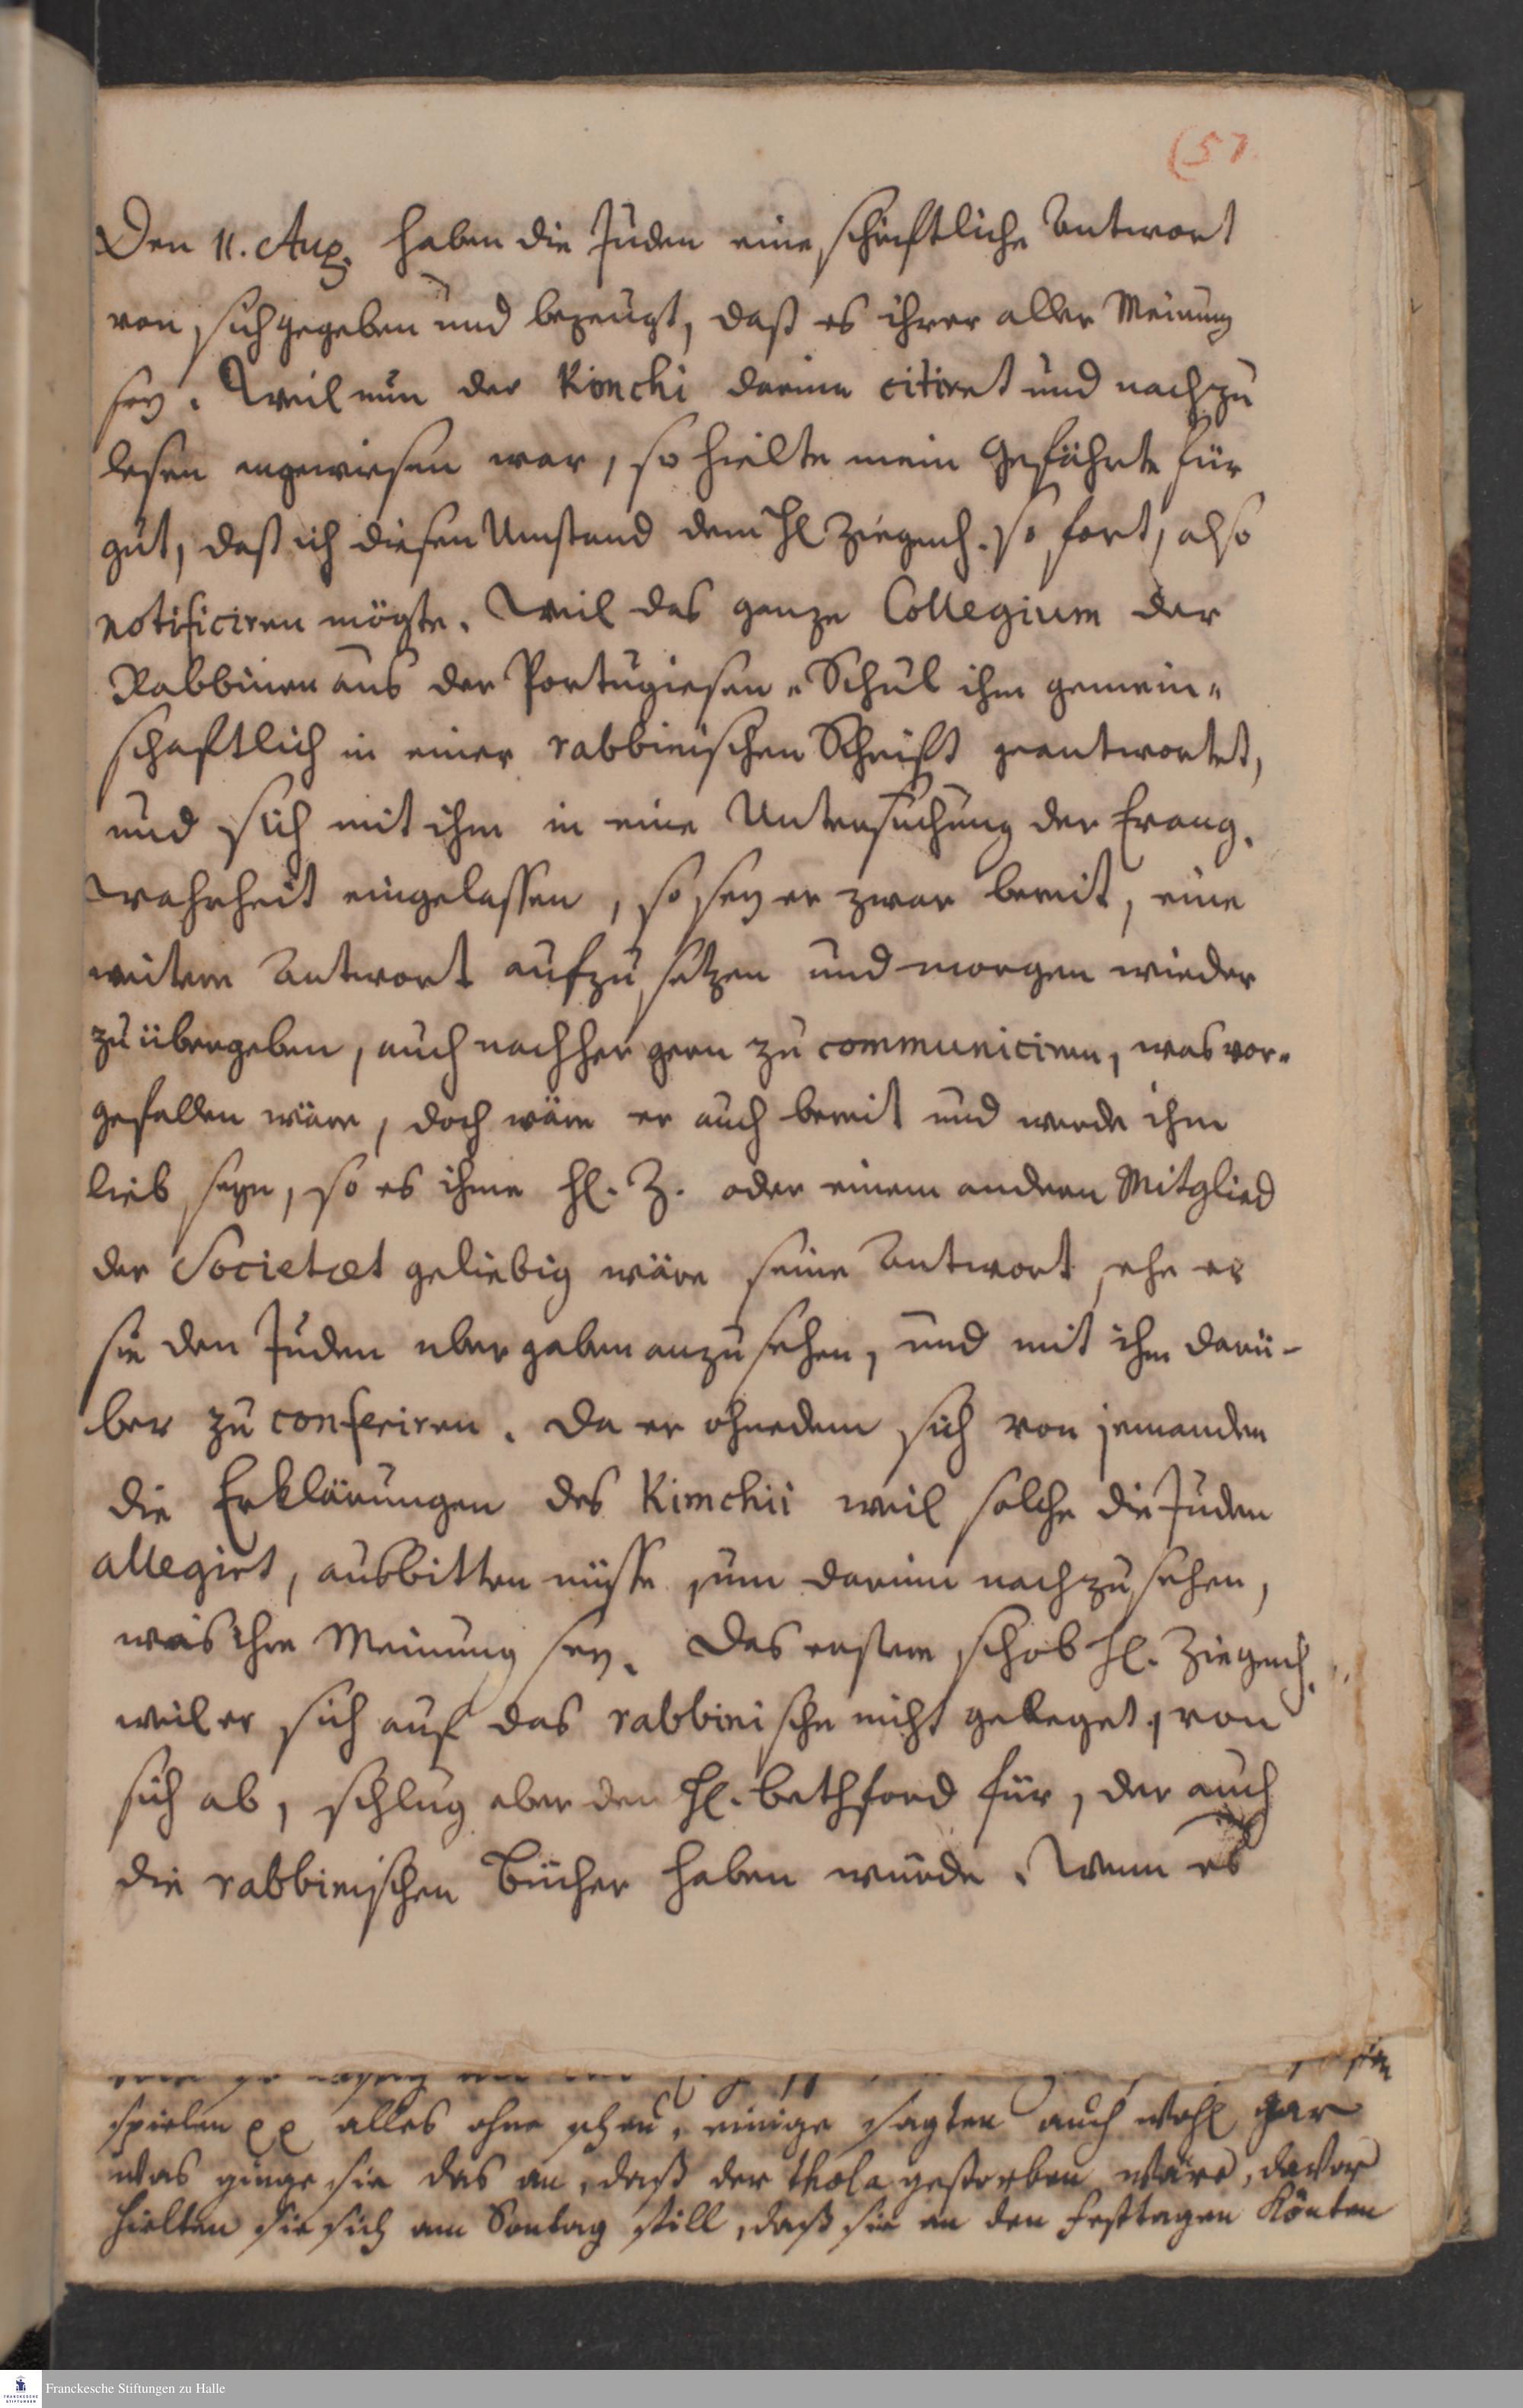 (57.
Den 11. Aug. haben die Juden eine schriftliche Antwort
von sich gegeben und bezeugt, daß es ihrer aller Meinung
sey. Weil nun der Kimchi darinn citiret und nachzu
lesen angewiesen war, so hielte mein Gefährte für
gut, daß ich diesen Umstand dem Hl Ziegenh. so fort, also
notificiren mögte. Weil das ganze Collegium der
Rabbinen aus der Portugiesen-Schul ihm gemein-
schaftlich in einer rabbinischen Schrift geantwortet,
und sich mit ihm in eine Untersuchung der Evang.
Wahrheit eingelassen, so sey er zwar bereit, eine
weitere Antwort aufzusetzen und morgen wieder
zu übergeben, auch nachher gern zu communiciren, was vor-
gefallen wäre, doch wäre er auch bereit und werde ihm
lieb seyn, so es ihme Hl. Z. oder einem andern Mitglied
der Societæt geliebig wäre seine Antwort, ehe er
sie den Juden übergeben anzusehen, und mit ihm darü-
ber zu conferiren. Da er ohnedem sich von jemanden
die Erklärungen des Kimchii weil solche die Juden
allegirt, ausbitten müsse, um darinn nachzusehen,
was ihre Meinung sey. Das erstere schob Hl. Ziegenh.
weil er sich auf das rabbinische nicht geleget, von
sich ab, schlug aber den Hl. Bethford für, der auch
die rabbinischen Bücher haben würde. Wenn es
spielen pp alles ohne scheu, einige sagten auch wohl gar
was ginge sie das an, daß der Thola gestorben wäre, davor
hielten sie sich am Sontag still, daß sie an den Festtagen könten